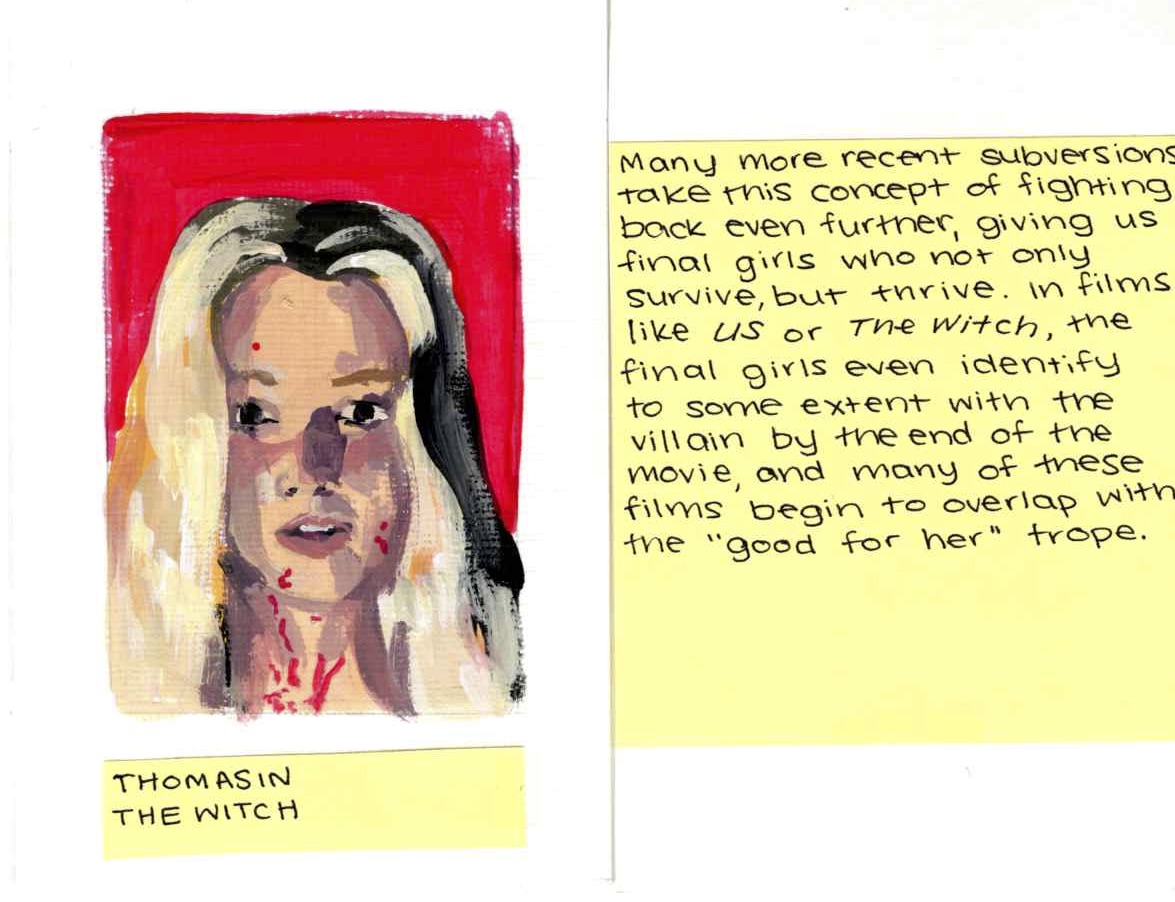 THOMASIN
THE WITCH
Many more recent subversions
take this concept of fighting
back even further, giving us
final girls who not only
survive, but thrive. In films
like US or The Witch, the
final girls even identify
to some extent with the
villain by the end of the
movie, and many of these
films begin to overlap with
the "good for her" trope.